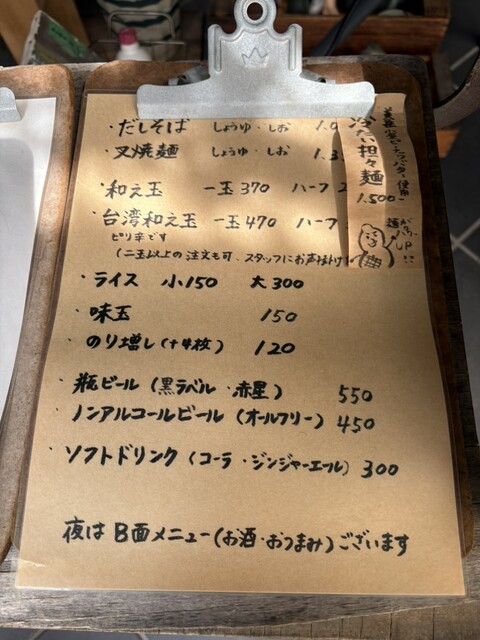 ・だしそば しょうゆ・しお 1.0
・叉焼麺 しょうゆ・しお 1.3
・和え玉 一玉370 ハーフ 2
・台湾和え玉 一玉470 ハーフ
ピリ辛です
(二玉以上の注文も可、スタッフにお声掛け
・ライス 小150 大300
・味玉 150
・のり増し(+4枚) 120
・瓶ビール(黒ラベル・赤星) 550
・ノンアルコールビール(オールフリー) 450
・ソフトドリンク(コーラ・ジンジャーエール) 300
夜はB面メニュー(お酒・おつまみ)ございます
冷たい担々麺
1.500
麺が
UP!!